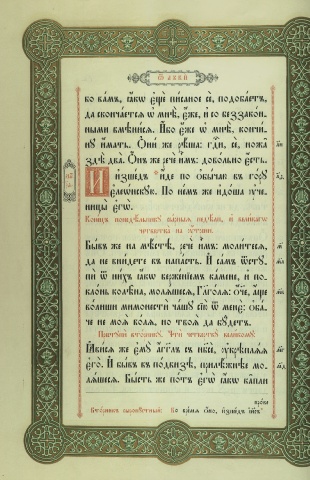 Ѿ лꙋки
бо вамъ, ꙗ҆́кѡ є҆щѐ писа́ное сѐ, подоба́етъ,
да сконча́етсѧ ѡ҆ мнѣ̀, є҆́же, и҆ со беззако́н-
ными вмѣни́сѧ. И҆́бо є҆́же ѡ҆ мнѣ̀, кончи́-
нꙋ и҆́мать. Ѻ҆ни́ же рѣ́ша: гдⷭ҇и, сѐ, ножа̑
здѣ̀ два̀. Ѻ҆́нъ же речѐ и҆̀мъ: дово́льно є҆́сть.
И҆ и҆зше́дъ и҆́де по ѻ҆бы́чаю въ го́рꙋ
є҆леѡ́нскꙋю. По не́мъ же и҆до́ша ᲂу҆че-
ницы̀ є҆гѡ̀.
Коне́цъ понедѣ́льникꙋ сы́рныѧ недѣ́ли, и҆ вели́кагѡ
четверткà на ᲂу҆́трени.
Бы́въ же на мѣ́стѣ, речѐ и҆̀мъ: моли́тесѧ,
да не вни́дете въ напа́сть. И҆ са́мъ ѿстꙋ-
пѝ ѿ ни́хъ ꙗ҆́кѡ верже́нїемъ ка́мене, и҆ по-
кло́нь кѡлѣ́на, молѧ́шесѧ, Глаго́лѧ: ѻ҆́ч҃е, а҆́ще
во́лиши мимонестѝ ча́шꙋ сїю̀ ѿ менє̀: ѻ҆ба́-
че не моѧ̀ во́лѧ, но твоѧ̀ да бꙋ́детъ.
Престꙋпѝ вто́рникꙋ. Чтѝ четверткꙋ̀ вели́комꙋ.
Ꙗ҆ви́сѧ же є҆мꙋ̀ а҆́гг҃лъ съ нб҃сѐ, ᲂу҆крѣплѧ́ѧ
є҆го̀. И҆ бы́въ въ по́двизѣ, прилѣ́жнѣе мо-
лѧ́шесѧ. Бы́сть же по́тъ є҆гѡ̀ ꙗ҆́кѡ ка́пли
кро́ве
Вто́рникъ сыропꙋ́стный: Во вре́мѧ ѻ҆́но, и҆зше́дъ і҆и҃съ